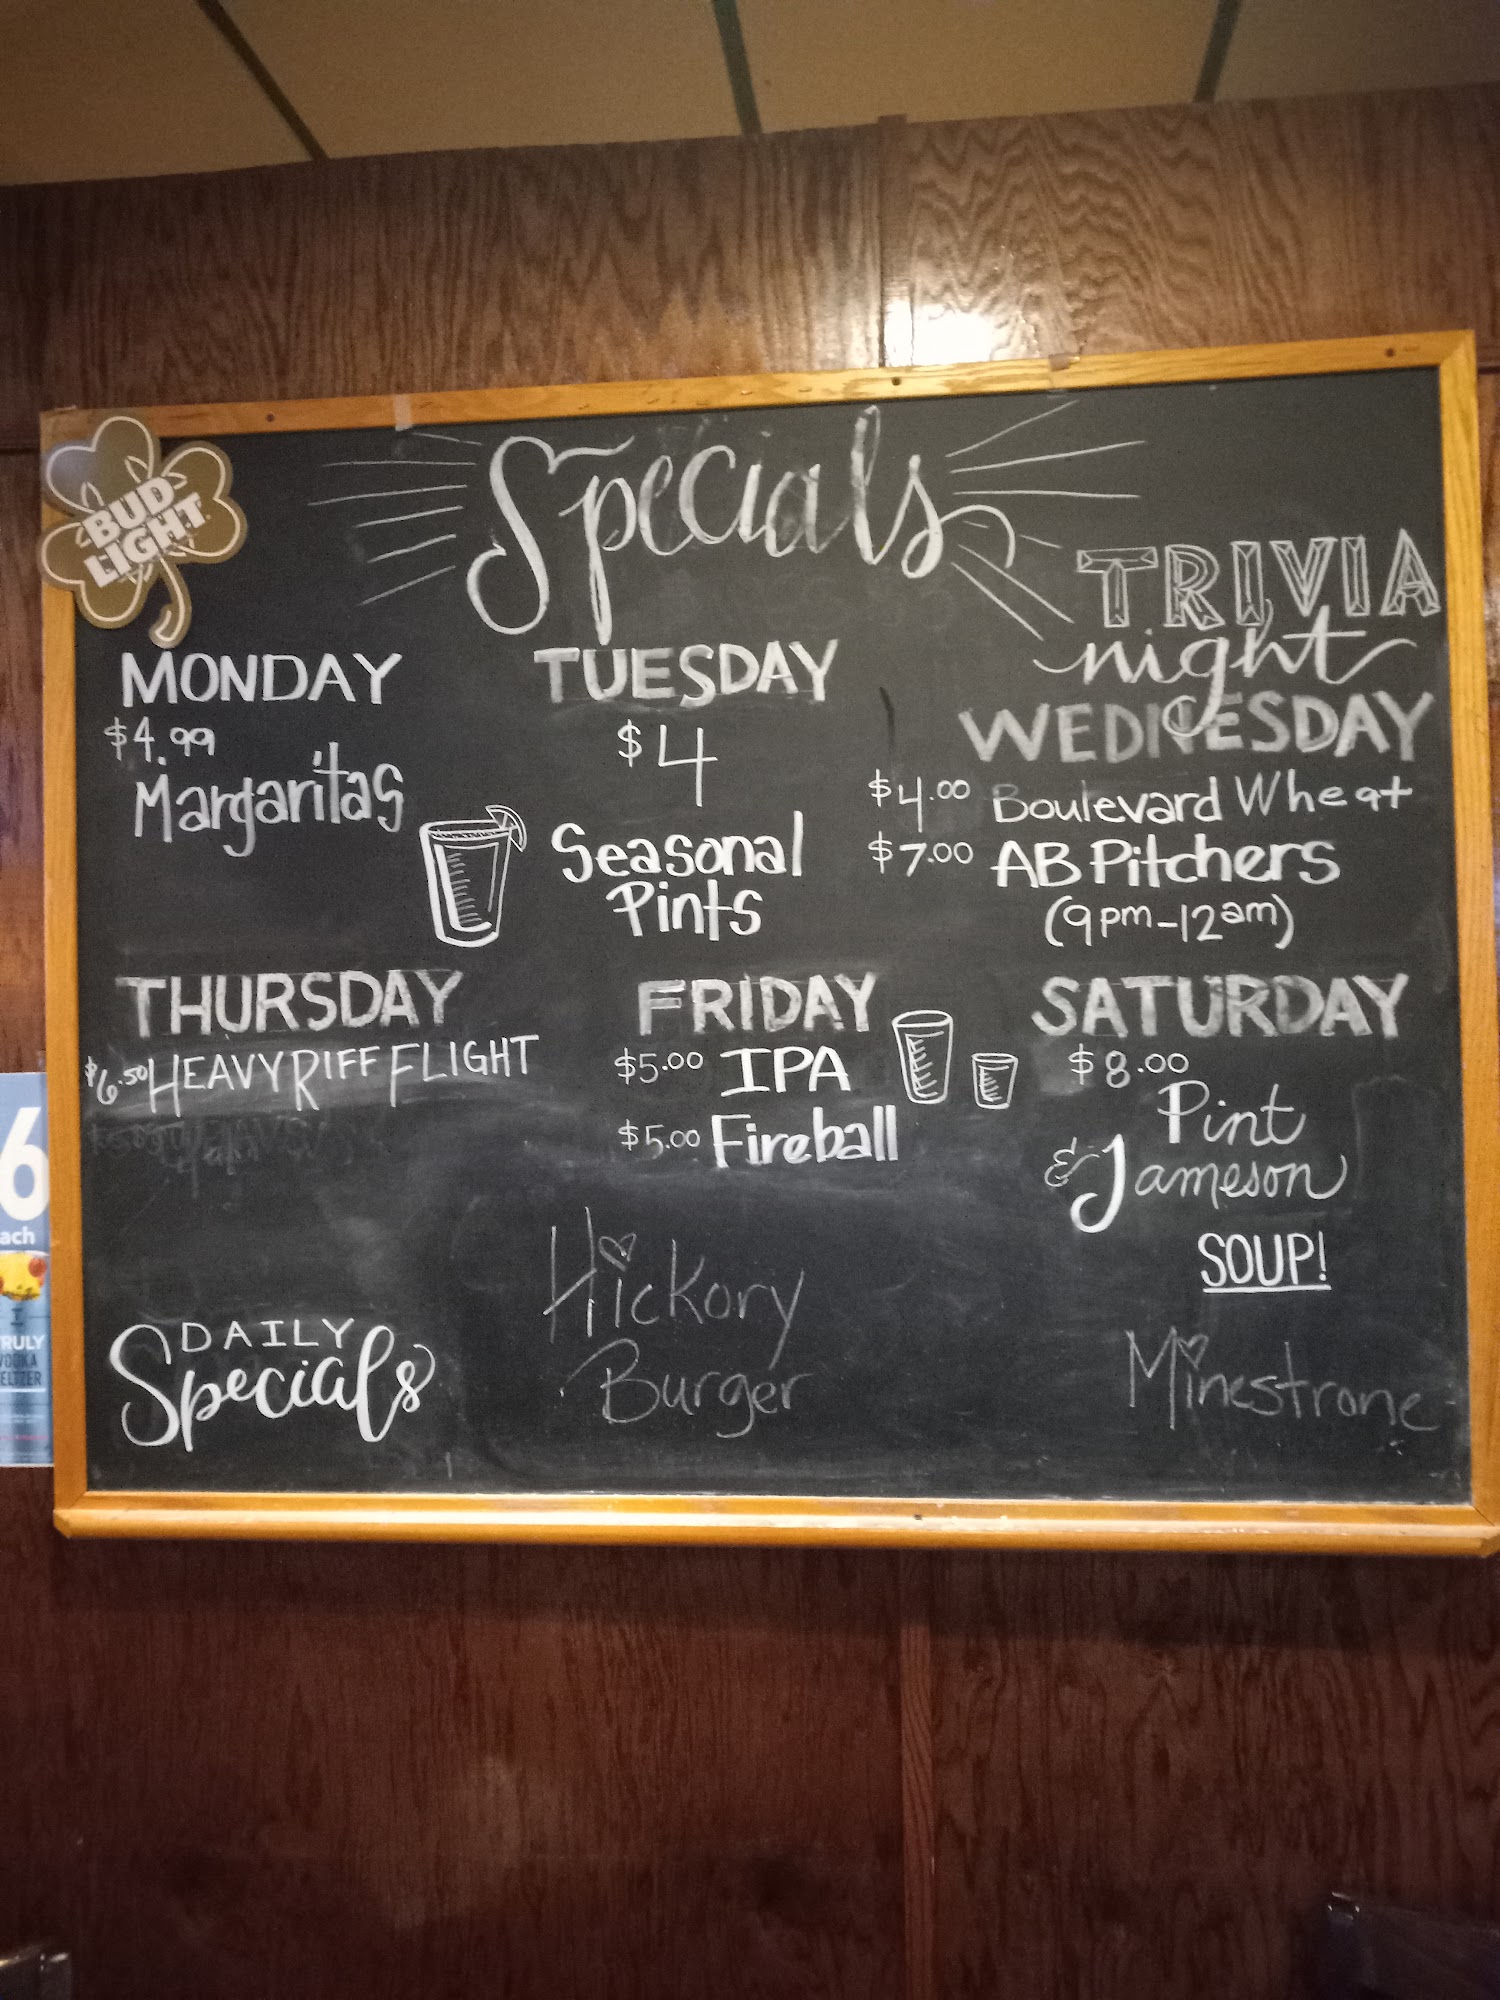 BUD
LIGHT.
Specials
TRIVIA
night
MONDAY
$4.99
Margaritas
TUESDAY
$4
Seasonal
Pints
WEDNESDAY
$4.00 Boulevard Wheat
$7.00 AB Pitchers
(9pm-12am)
THURSDAY
$6.50 HEAVY RIFF FLIGHT
FRIDAY
$5.00 IPA
$5.00 Fireball
SATURDAY
$8.00
Pint
& Jameson
SOUP!
Minestrone
DAILY
Specials
Hickory
Burger
6
ach
RULY